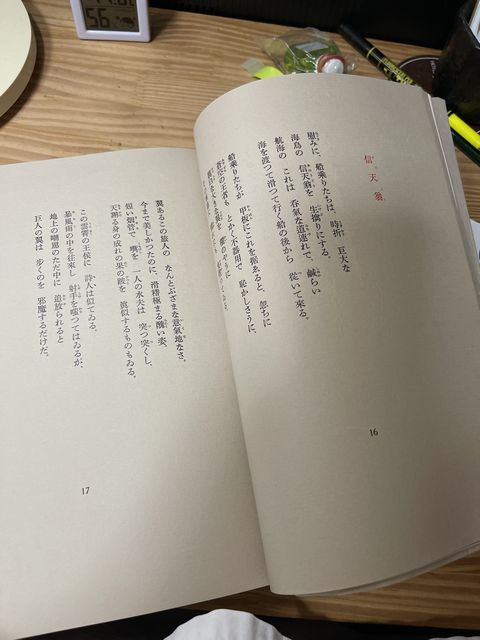 信天翁
慰みに、船乗りたちは、時折 巨大な
海鳥の 信天翁を 生擒りにする。
航海の これは 呑氣な道連れで、鹹らい
海を渡つて滑つて行く船の後から 從いて來る。
船乗りたちが 甲板にこれを据ゑると、忽ちに
蒼空の王者も とかく不器用で 恥かしさうに、
16
翼あるこの旅人の なんとぶざまな意氣地なさ。
今まで美しかつたのに、滑稽極まる醜い姿、
短い烟管で 嘴を 一人の水夫は 突つ突くし、
天翔る身の成れの果の跛を 眞似するものもゐる。
この雲霄の王侯に 詩人は似てゐる。
暴風雨の中を往來し 射手を嗤つてはゐるが、
地上の嘲罵のただ中に 追放られると
巨人の翼は 歩くのを 邪魔するだけだ。
17